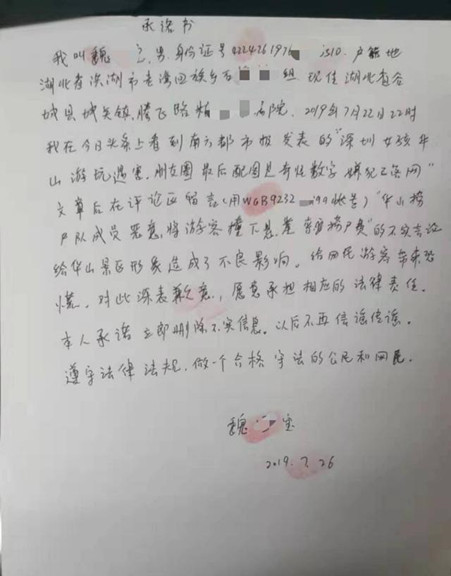 承诺书
我叫魏 男,身份证号 1510.户籍地
湖北省洪湖市老湾回族乡 组 现住湖北省谷
城县城关镇腾飞路 院. 2019年7月22日22时
我在今日头条上看到南方都市报发表的"深圳女孩华
山游玩遇害,朋友圈最后配图是奇怪数字 嫌犯已落网"
文章后在评论区留言(用WGB9232 账号)"华山挣
尸队成员恶意将游客撞下悬崖 索要捞尸费"的不实言论
给华山景区形象造成了不良影响。给回民游客带来恐
慌。对此深表歉意,愿意承担相应的法律责任。
本人承诺立即删除不实信息。以后不再信谣传谣。
遵守法律法规.做一个合格守法的公民和网民.
魏 宝
2019.7.26